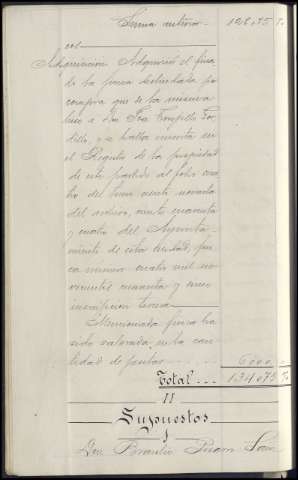 Suma anterior 128,075 P.
cos
Adquisición Adquirió el finado
de la finca deslindada por
compra que de la misma
hizo a Don José
y se halla inscrita en
el Registro de la propiedad
de este partido al folio
del tomo ciento noventa
del archivo, ciento cuarenta
y cuatro del Ayunta-
miento de esta ciudad, fin-
ca número cuatro mil no-
vecientos cuarenta y cinco
inscripción tercera
Mencionada finca ha
sido valorada en la can-
tidad de pesetas 6000,,
Total 134,075 P.
II
Supuestos
I
Don Juan